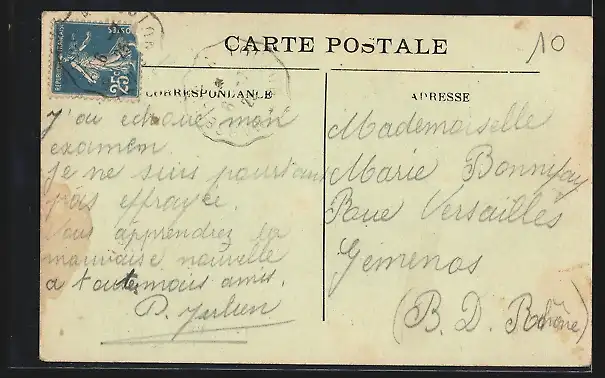 CARTE POSTALE
10
POSTES
REPUBLIQUE FRANÇAISE
25c
CORRESPONDANCE
J'ai échoué mon
examen.
Je ne suis pourtant
pas effrayée.
Vous apprendrez la
mauvaise nouvelle
à toute mais amies.
P. Julien
ADRESSE
Mademoiselle
Marie Bonnifay
Roue Versailles
Gémenos
(B. D. Rhône)